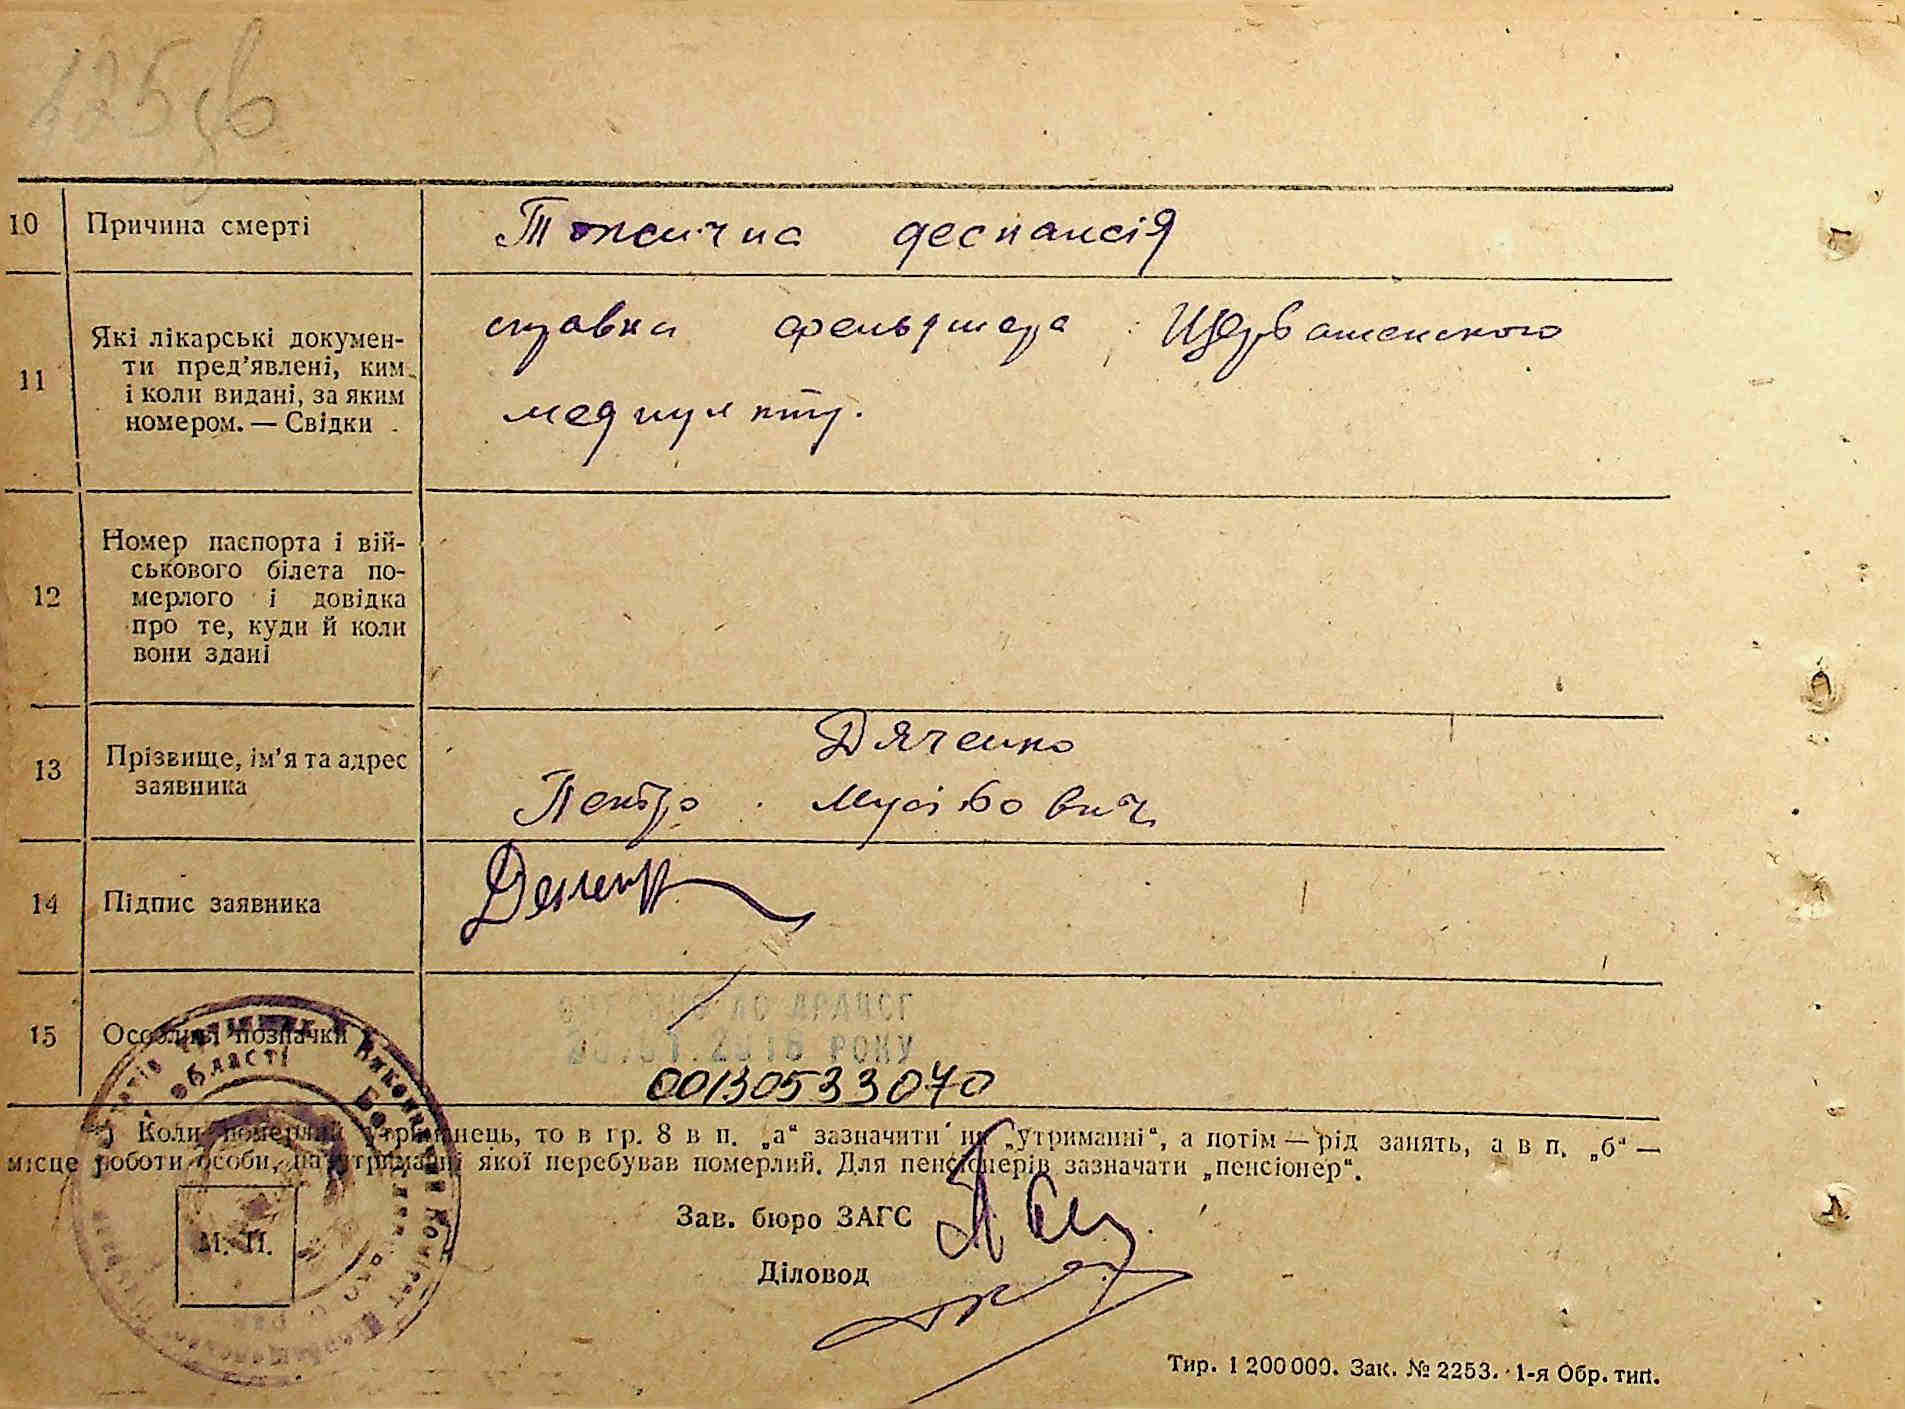 10 Причина смерті Токсична деспансія
11 Які лікарські докумен-
ти пред'явлені, ким
і коли видані, за яким
номером. — Свідки
справка фельдшера Щербашенского
медпункту.
12 Номер паспорта і вій-
ськового білета по-
мерлого і довідка
про те, куди й коли
вони здані
13 Прізвище, ім'я та адрес
заявника
Дяченко
Петро Мусійович
14 Підпис заявника
15 Особливі позначки
ДО ДРАЦСГ
2016 РОКУ
00130533070
Коли померлий утриманець, то в гр. 8 в п. „а“ зазначити на „утриманні“, а потім — рід занять, а в п. „б“ —
місце роботи особи, на утриманні якої перебував померлий. Для пенсіонерів зазначати „пенсіонер“.
Зав. бюро ЗАГС
М. П.
Діловод
Тир. 1 200 000. Зак. № 2253. 1-я Обр. тип.